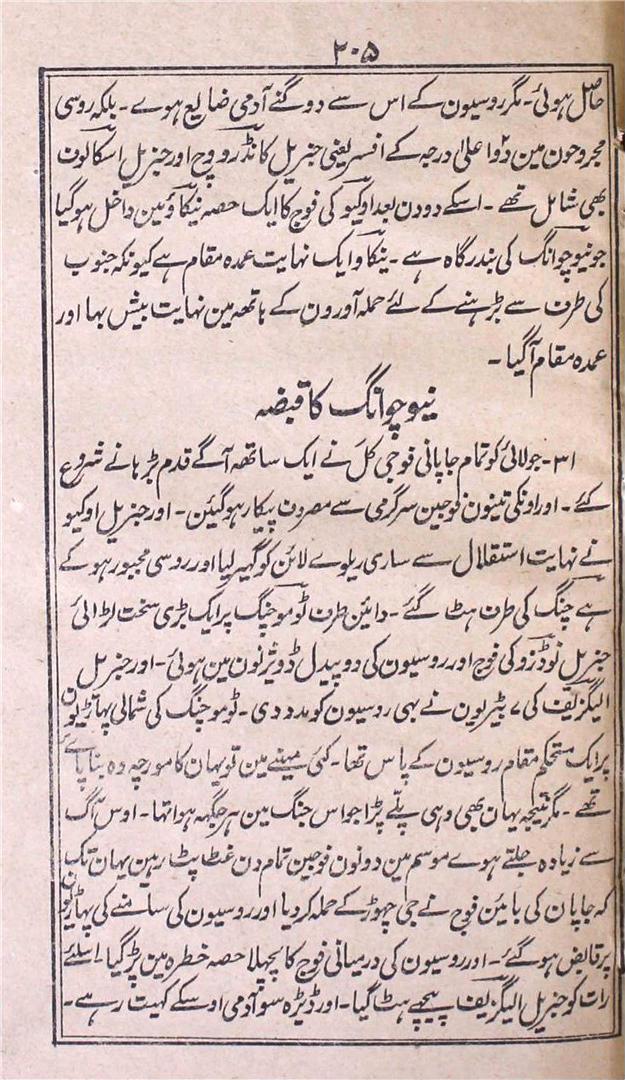 ۲۰۵
حاصل ہوئی۔ مگر روسیون کے اس سے دو گنے آدمی ضایع ہوے۔ بلکہ روسی
مجروحون مین دو اعلیٰ درجہ کے افسر یعنی جنریل کانڈرووچ اور جنریل اسکالون
بھی شامل تھے۔ اسکے دو دن بعد اوکیو کی فوج کا ایک حصہ نیکاؤ مین داخل ہو گیا
جو نیوچوانگ کی بندرگاہ ہے۔ ینکاو ایک نہایت عمدہ مقام ہے کیونکہ جنوب
کی طرف سے بڑہنے کے لئے حملہ آورون کے ہاتھہ مین نہایت بیش بہا اور
عمدہ مقام آگیا۔
نیوچوانگ کا قبضہ
۳۱۔ جولائی کو تمام جاپانی فوجی کل نے ایک ساتھہ آگے قدم بڑہانے شروع
کئے۔ اور اونکی تینون فوجین سرگرمی سے مصروف پیکار ہوگیئن۔ اور جنریل اوکیو
نے نہایت استقلال سے ساری ریلوے لائن کو گہیر لیا اور روسی مجبور ہو کے
ہے چنگ کی طرف ہٹ گئے۔ دایئن طرف ٹوموچنگ پر ایک بڑی سخت لڑائی
جنریل نوڈزو کی فوج اور روسیون کی دو پیدل ڈویژنون مین ہوئی۔ اور جنریل
الیگزیف کی ۷ بٹیریون نے بہی روسیون کو مدد دی۔ ٹوموچنگ کی شمالی پہاڑیون
پر ایک مستحکم مقام روسیون کے پاس تھا۔ کئی مہینے مین تو یہان کا مورچہ وہ بنا پائے
تھے۔ مگر نتیجہ یہان بھی وہی پلّے پڑا جو اس جنگ مین ہر جگہہ ہوا تہا۔ اوس آگ
سے زیادہ جلتے ہوے موسم مین دونون فوجین تمام دن غٹاپٹ رہین یہان تک
کہ جاپان کی بایئن فوج نے جی چہوڑ کے حملہ کر دیا اور روسیون کی سامنے کی پہاڑیون
پر قابض ہو گئے۔ اور روسیون کی درمیانی فوج کا پچہلا حصہ خطرہ مین پڑ گیا اسلئے
رات کو جنریل الیگزیف پیچہے ہٹ گیا۔ اور ڈیڑہ سو آدمی اوسکے کہیت رہے۔